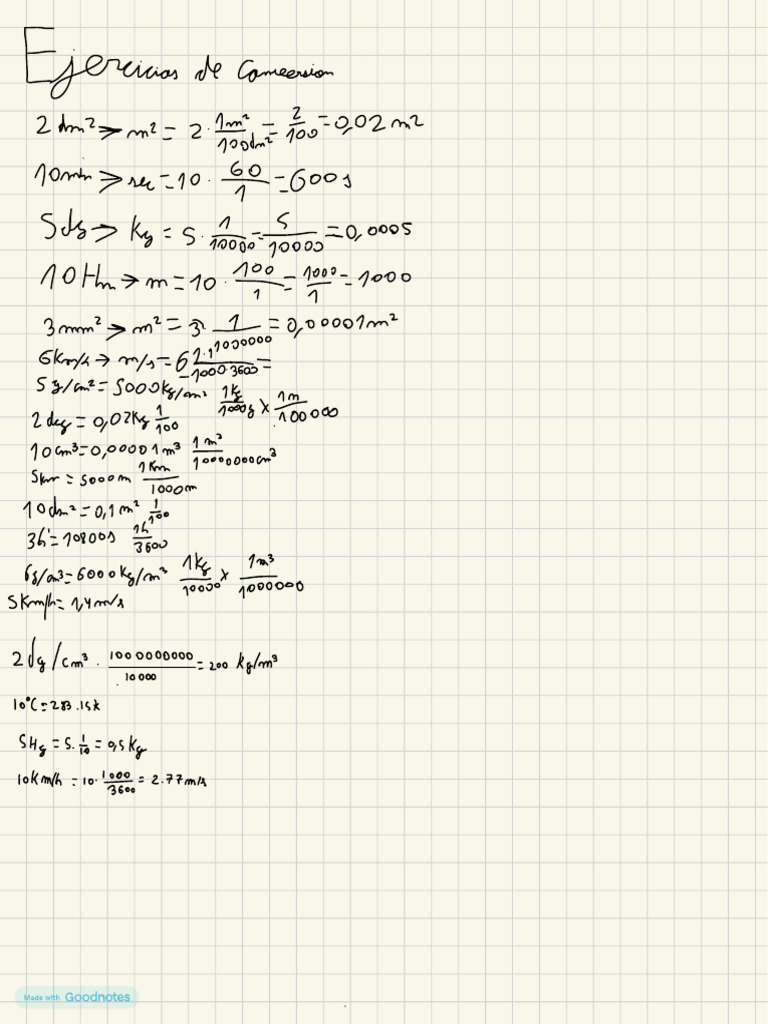 Ejercicios de Conversion
2 dm² → m² = 2 · 1m²/100dm² = 2/100 = 0,02 m²
10min → sec = 10 · 60/1 = 600s
5dg → Kg = 5 · 1/10000 = 5/10000 = 0,0005
10Hm → m = 10 · 100/1 = 1000/1 = 1000
3mm² → m² = 3 · 1/1000000 = 0,00001m²
6Km/h → m/s = 6 /1000·3600 =
5g/cm² = 5000Kg/m² 1Kg/1000g × 1m/100000
2dcg = 0,02Kg 1/100
10cm³ = 0,00001m³ 1m³/10000000cm³
5km = 5000m 1Km/1000m
10dm² = 0,1m² 1/100
3h = 10800s 1h/3600
6g/cm³ = 6000Kg/m³ 1Kg/10000 × 1m³/1000000
5Km/h = 1,4m/s
2dg/cm³ · 1000000000/10000 = 200 Kg/m³
10°C = 283.15k
5Hg = 5 · 1/10 = 0,5Kg
10Km/h = 10 · 1000/3600 = 2.77m/s
Made with Goodnotes